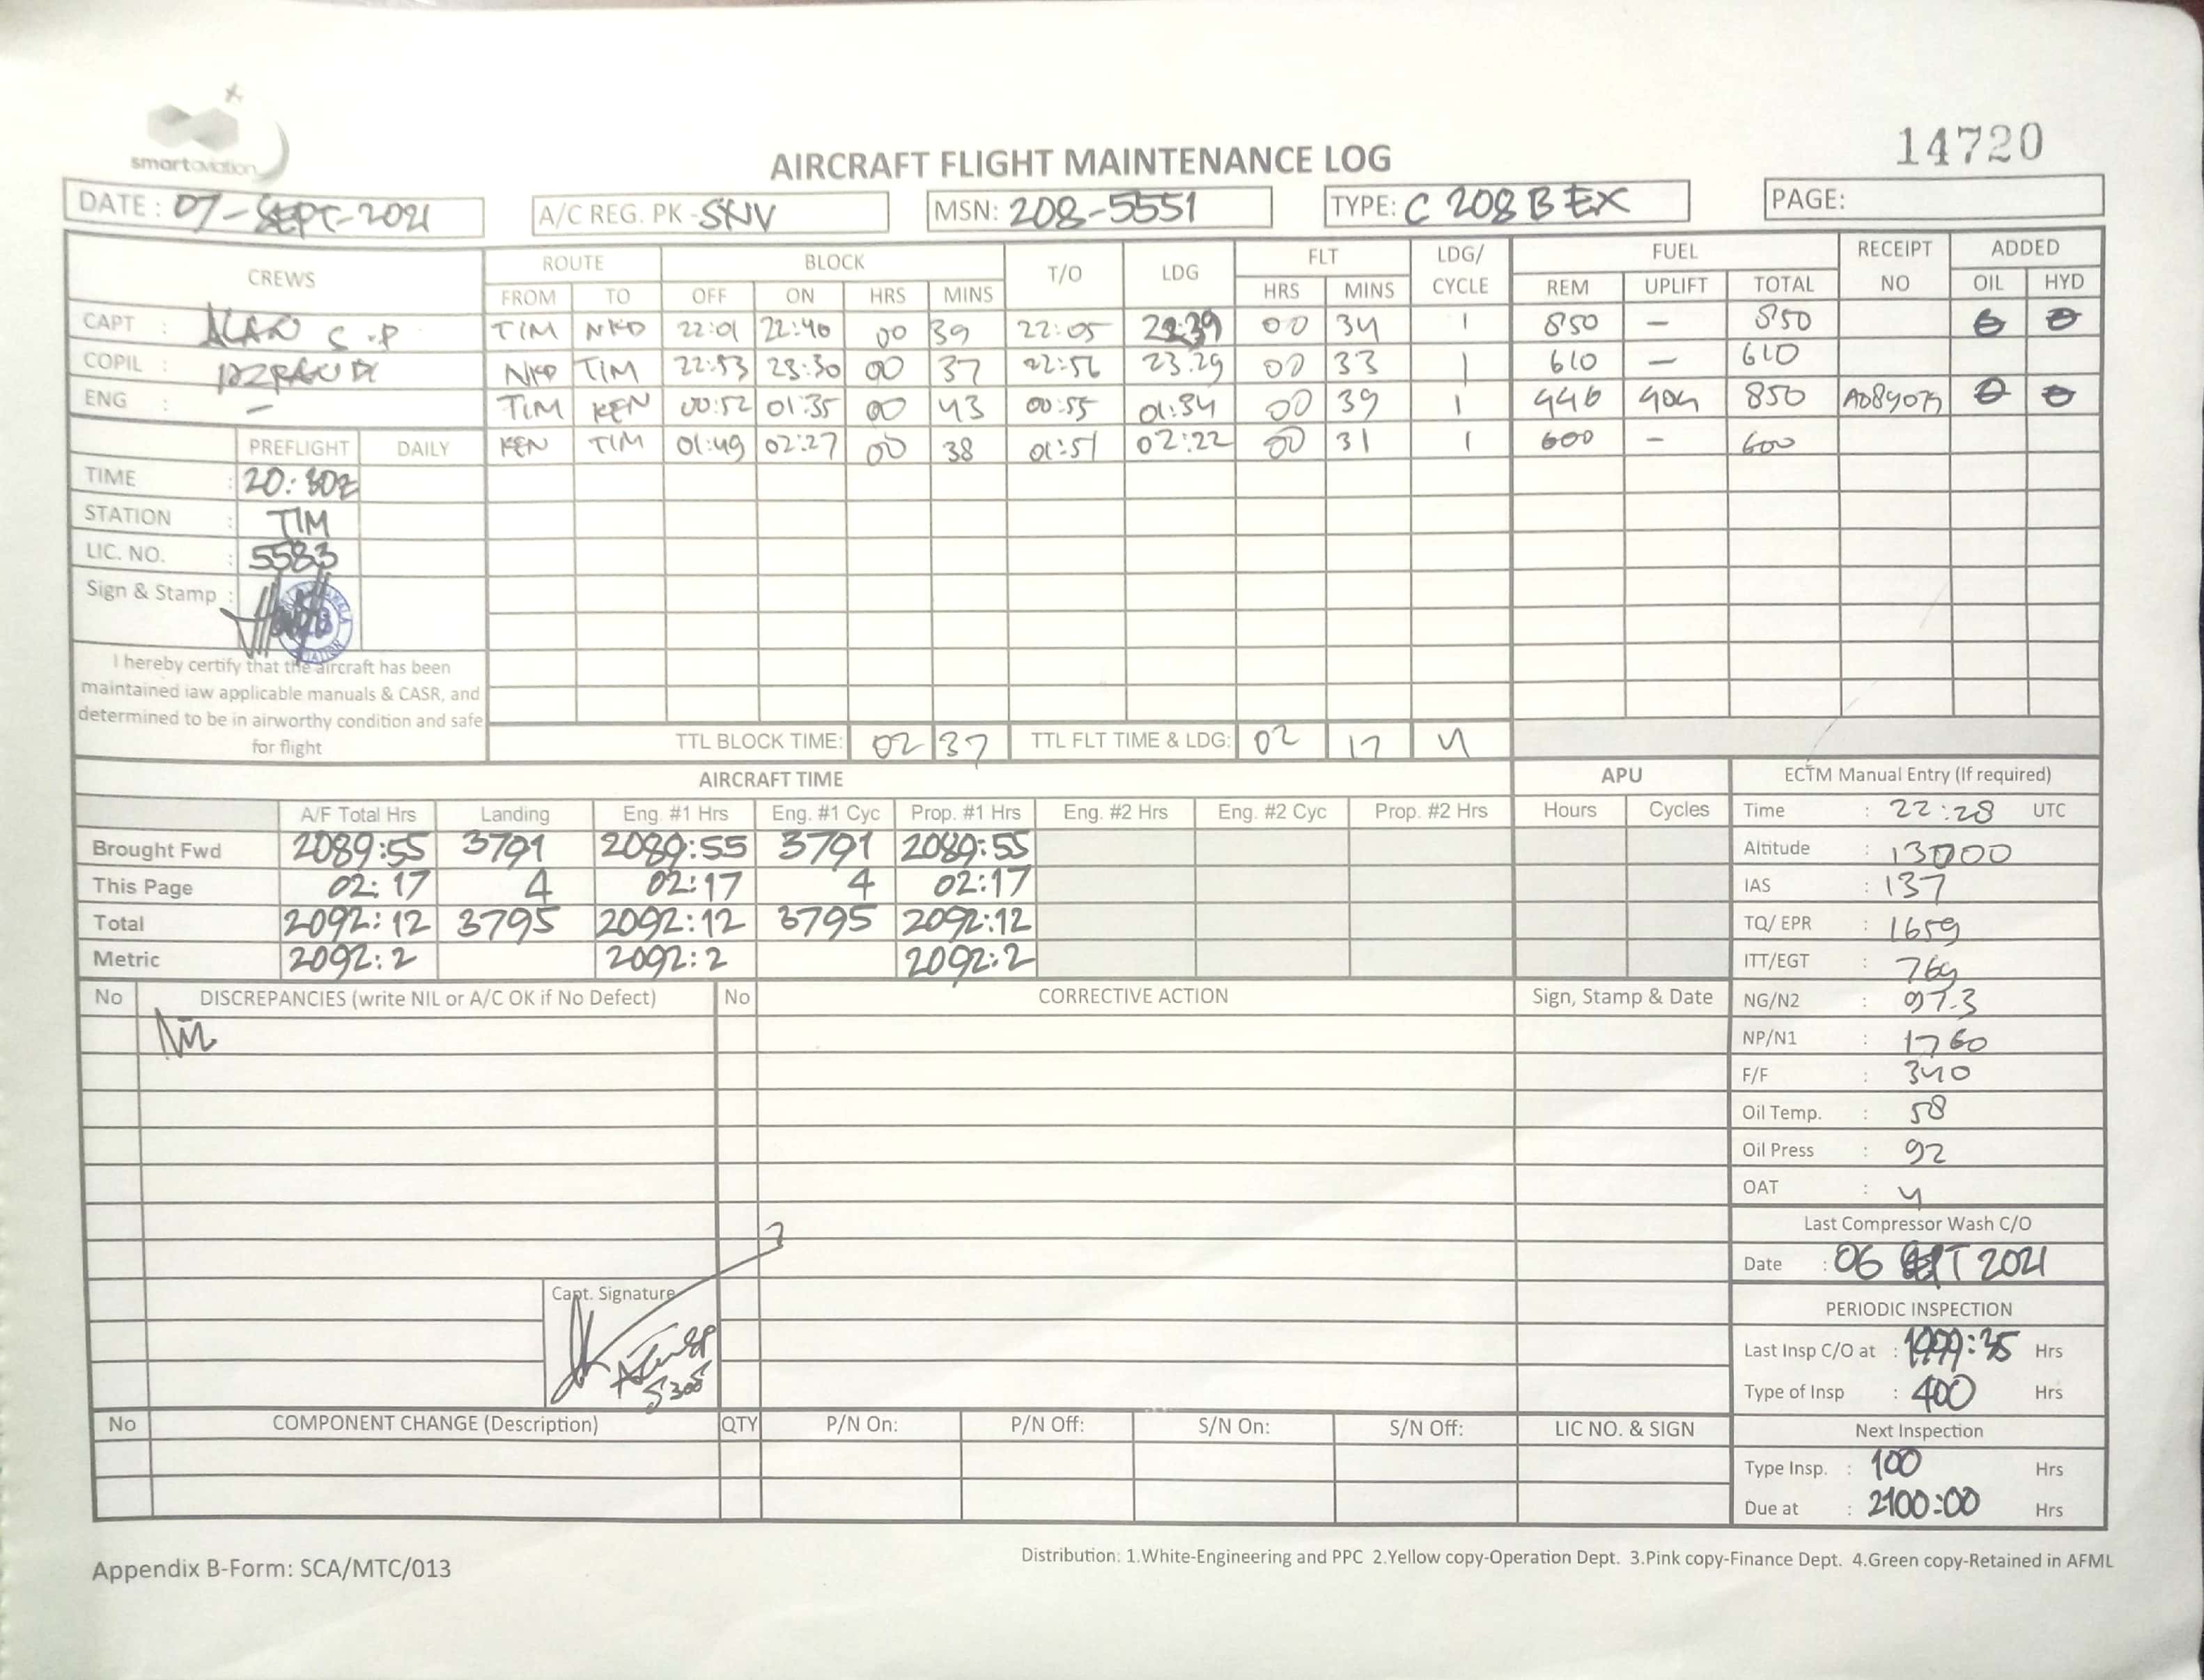 smartaviation
14720
AIRCRAFT FLIGHT MAINTENANCE LOG
DATE : 07-SEPT-2021 A/C REG. PK - SNV MSN: 208-5551 TYPE: C 208 B EX PAGE:
CREWS ROUTE BLOCK T/O LDG FLT LDG/ CYCLE FUEL RECEIPT NO ADDED
FROM TO OFF ON HRS MINS HRS MINS REM UPLIFT TOTAL OIL HYD
CAPT : ALAN S.P TIM NKD 22:01 22:40 00 39 22:05 22:39 00 34 1 850 – 850 0 0
COPIL : NKD TIM 22:53 23:30 00 37 22:56 23:29 00 33 1 610 – 610
ENG : – TIM KEN 00:52 01:35 00 43 00:55 01:34 00 39 1 446 404 850 0 0
PREFLIGHT DAILY KEN TIM 01:49 02:27 00 38 01:51 02:22 00 31 1 600 – 600
TIME : 20:30z
STATION : TIM
LIC. NO. : 5583
Sign & Stamp :
I hereby certify that the aircraft has been
maintained iaw applicable manuals & CASR, and
determined to be in airworthy condition and safe
for flight
TTL BLOCK TIME: 02 37 TTL FLT TIME & LDG: 02 17 4
AIRCRAFT TIME APU ECTM Manual Entry (If required)
A/F Total Hrs Landing Eng. #1 Hrs Eng. #1 Cyc Prop. #1 Hrs Eng. #2 Hrs Eng. #2 Cyc Prop. #2 Hrs Hours Cycles Time : 22:28 UTC
Brought Fwd 2089:55 3791 2089:55 3791 2089:55 Altitude : 13000
This Page 02:17 4 02:17 4 02:17 IAS : 137
Total 2092:12 3795 2092:12 3795 2092:12 TQ/ EPR : 1659
Metric 2092:2 2092:2 2092:2 ITT/EGT : 769
No DISCREPANCIES (write NIL or A/C OK if No Defect) No CORRECTIVE ACTION Sign, Stamp & Date NG/N2 : 97.3
Nil
NP/N1 : 1760
F/F : 340
Oil Temp. : 58
Oil Press : 92
OAT : 4
Last Compressor Wash C/O
Date : 06 SEPT 2021
Capt. Signature
5305
PERIODIC INSPECTION
Last Insp C/O at : 1999:35 Hrs
Type of Insp : 400 Hrs
No COMPONENT CHANGE (Description) QTY P/N On: P/N Off: S/N On: S/N Off: LIC NO. & SIGN Next Inspection
Type Insp. : 100 Hrs
Due at : 2100:00 Hrs
Appendix B-Form: SCA/MTC/013
Distribution: 1.White-Engineering and PPC 2.Yellow copy-Operation Dept. 3.Pink copy-Finance Dept. 4.Green copy-Retained in AFML